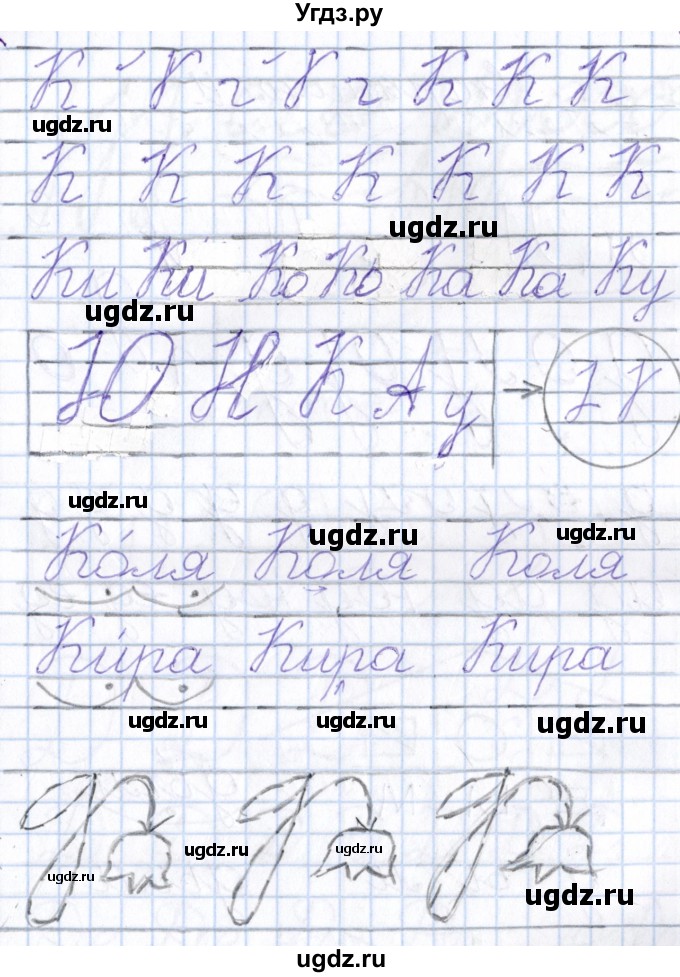 Угдз.ру
К К г К г К К К
ugdz.ru
К К К К К К К
ugdz.ru
Ки Ки Ко Ко Ка Ка Ку
ugdz.ru
Ю Н К А у
ugdz.ru
ugdz.ru
ugdz.ru
Ко́ля Коля Коля
Ки́ра Кира Кира
ugdz.ru
ugdz.ru
ugdz.ru
ugdz.ru
ugdz.ru
ugdz.ru
ugdz.ru
ugdz.ru